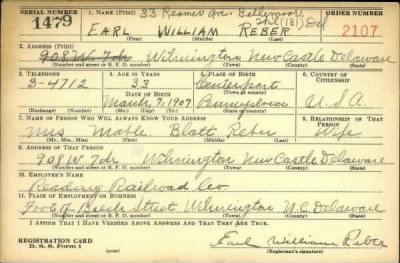 SERIAL NUMBER 1. NAME (Print) 33 Reamer Ave. Bellemoor ORDER NUMBER
1479 EARL WILLIAM REBER 2107
(First) (Middle) (Last)
2. ADDRESS (Print)
908 W. 7th Wilmington New Castle Delaware
(Number and street or R. F. D. number) (Town) (County) (State)
3. TELEPHONE 4. AGE IN YEARS 5. PLACE OF BIRTH 6. COUNTRY OF CITIZENSHIP
3-4712 33 Centerport
DATE OF BIRTH (Town or county)
March 7, 1907 Pennsylvania U.S.A.
(Exchange) (Number) (Mo.) (Day) (Yr.) (State or country)
7. NAME OF PERSON WHO WILL ALWAYS KNOW YOUR ADDRESS 8. RELATIONSHIP OF THAT PERSON
Mrs Mable Blatt Reber Wife
(Mr., Mrs., Miss) (First) (Middle) (Last)
9. ADDRESS OF THAT PERSON
908 W. 7th Wilmington New Castle Delaware
(Number and street or R. F. D. number) (Town) (County) (State)
10. EMPLOYER'S NAME
Reading Railroad Co
11. PLACE OF EMPLOYMENT OR BUSINESS
Foot of Beech Street Wilmington N.C. Delaware
(Number and street or R. F. D. number) (Town) (County) (State)
I AFFIRM THAT I HAVE VERIFIED ABOVE ANSWERS AND THAT THEY ARE TRUE.
REGISTRATION CARD
D. S. S. Form 1
Earl William Reber
(Registrant's signature)